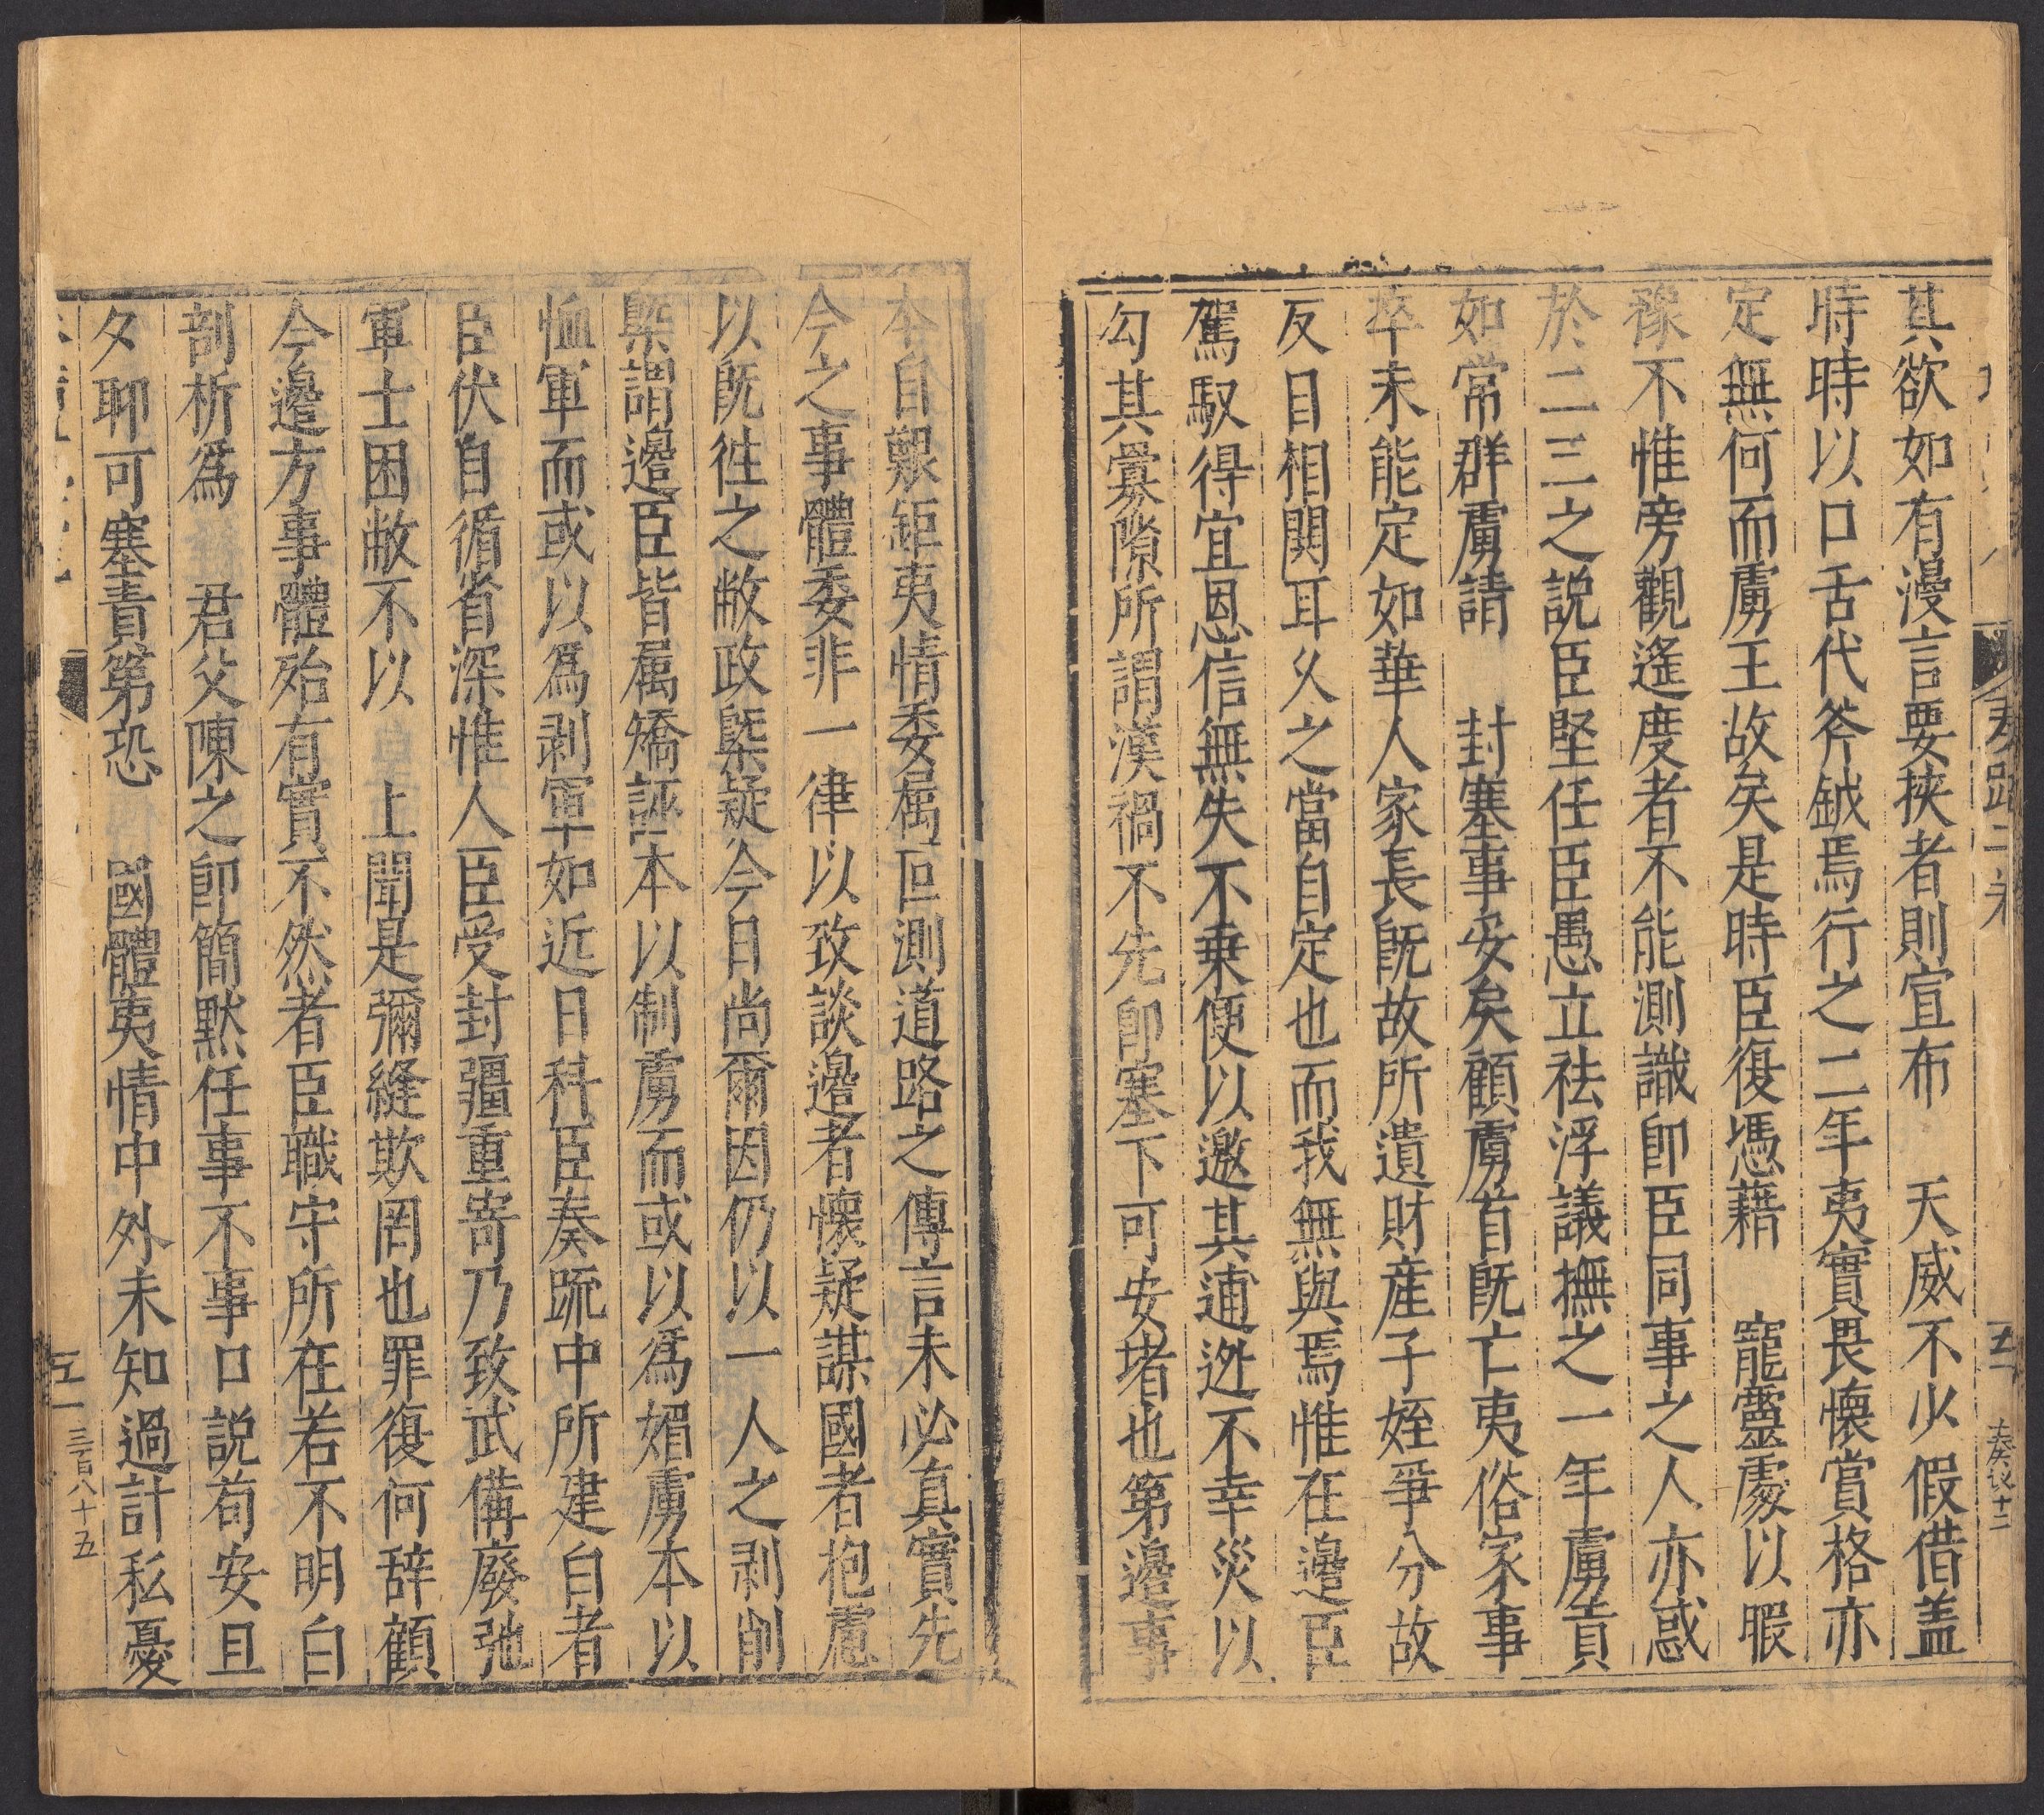 奏疏二
五
奏议十二
其欲如有漫言要挾者則宣布　天威不少假借蓋
時時以口舌代斧鉞焉行之二年夷實畏懷賞格亦
定無何而虜王故矣是時臣復憑藉　寵靈處以暇
豫不惟旁觀遙度者不能測識卽臣同事之人亦惑
於二三之説臣堅任臣愚立祛浮議撫之一年虜貢
如常群虜請　封塞事安矣顧虜首旣亡夷俗家事
卒未能定如華人家長旣故所遺財產子姪爭分故
反目相鬩耳久之當自定也而我無與焉惟在邊臣
駕馭得宜恩信無失不乗便以邀其逋逃不幸災以
勾其釁隙所謂漢禍不先卽塞下可安堵也第邊事
本自艱鉅夷情委属叵測道路之傳言未必真實先
今之事體委非一律以致談邊者懷疑謀國者抱慮
以旣徃之敝政槩疑今日尚爾因仍以一人之剥削
槩謂邊臣皆属矯誣本以制虜而或以爲媚虜本以
恤軍而或以爲剥軍如近日科臣奏疏中所建白者
臣伏自循省深惟人臣受封疆重寄乃致武備廢弛
軍士困敝不以　上聞是彌縫欺罔也罪復何辞顧
今邊方事體殆有實不然者臣職守所在若不明白
剖析爲　君父陳之卽簡默任事不事口説苟安旦
夕聊可塞責第恐　國體夷情中外未知過計私憂
五
三百八十五